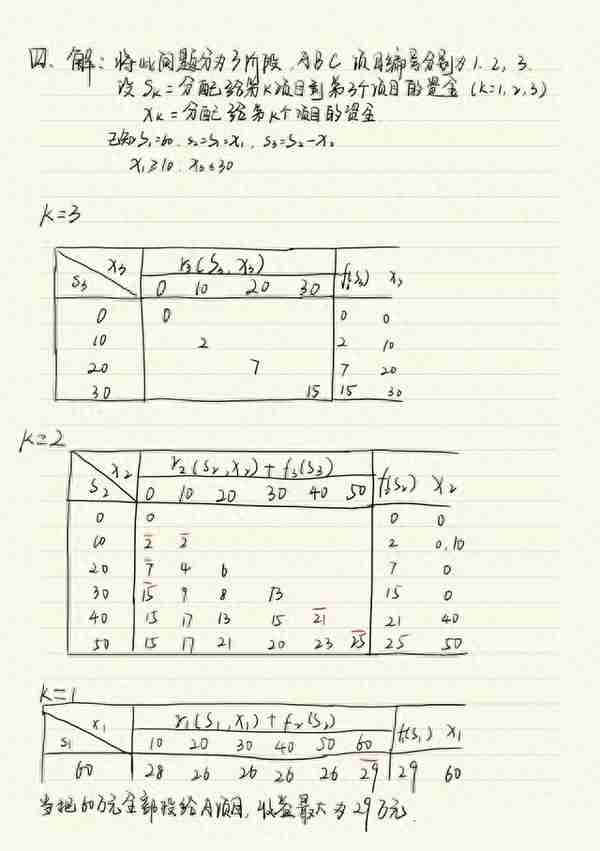 四、解：将此问题分为3阶段，A B C 项目编号分别为1. 2, 3.
设 Sk = 分配给第k项目到第3个项目的资金 (k=1, 2, 3)
xk = 分配给第k个项目的资金
已知 S1=60. S2=S1-x1, S3=S2-x2
x1≥10. x3≤30
k=3
S3 x3 r3(S3, x3) f(S3) x3
0 10 20 30
0 0 0 0
10 2 2 10
20 7 7 20
30 15 15 30
k=2
S2 x2 r2(S2, x2) + f3(S3) f(S2) x2
0 10 20 30 40 50
0 0 0 0
10 2 2 2 0.10
20 7 4 6 7 0
30 15 9 8 13 15 0
40 15 17 13 15 21 21 40
50 15 17 21 20 23 25 25 50
k=1
S1 x1 r1(S1, x1) + f2(S2) f(S1) x1
10 20 30 40 50 60
60 28 26 26 26 26 29 29 60
当把60万元全部投给A项目，收益最大为29万元.